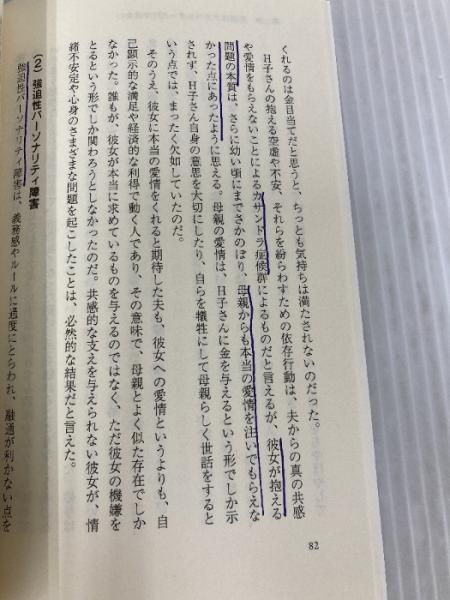 くれるのは金目当てだと思うと、ちっとも気持ちは満たされないのだった。
H子さんの抱える空虚や不安、それらを紛らわすための依存行動は、夫からの真の共感
や愛情をもらえないことによるカサンドラ症候群によるものだと言えるが、彼女が抱える
問題の本質は、さらに幼い頃にまでさかのぼり、母親からも本当の愛情を注いでもらえな
かった点にあったように思える。母親の愛情は、H子さんに金を与えるという形でしか示
されず、H子さん自身の意思を大切にしたり、自らを犠牲にして母親らしく世話をすると
いう点では、まったく欠如していたのだ。
そのうえ、彼女に本当の愛情をくれると期待した夫も、彼女への愛情というよりも、自
己顕示的な満足や経済的な利得で動く人であり、その意味で、母親とよく似た存在でしか
なかった。誰もが、彼女が本当に求めているものを与えるのではなく、ただ彼女の機嫌を
とるという形でしか関わろうとしなかったのだ。共感的な支えを与えられない彼女が、情
緒不安定や心身のさまざまな問題を起こしたことは、必然的な結果だと言えた。
(2) 強迫性パーソナリティ障害
強迫性パーソナリティ障害は、義務感やルールに過度にとらわれ、融通が利かない点を
82